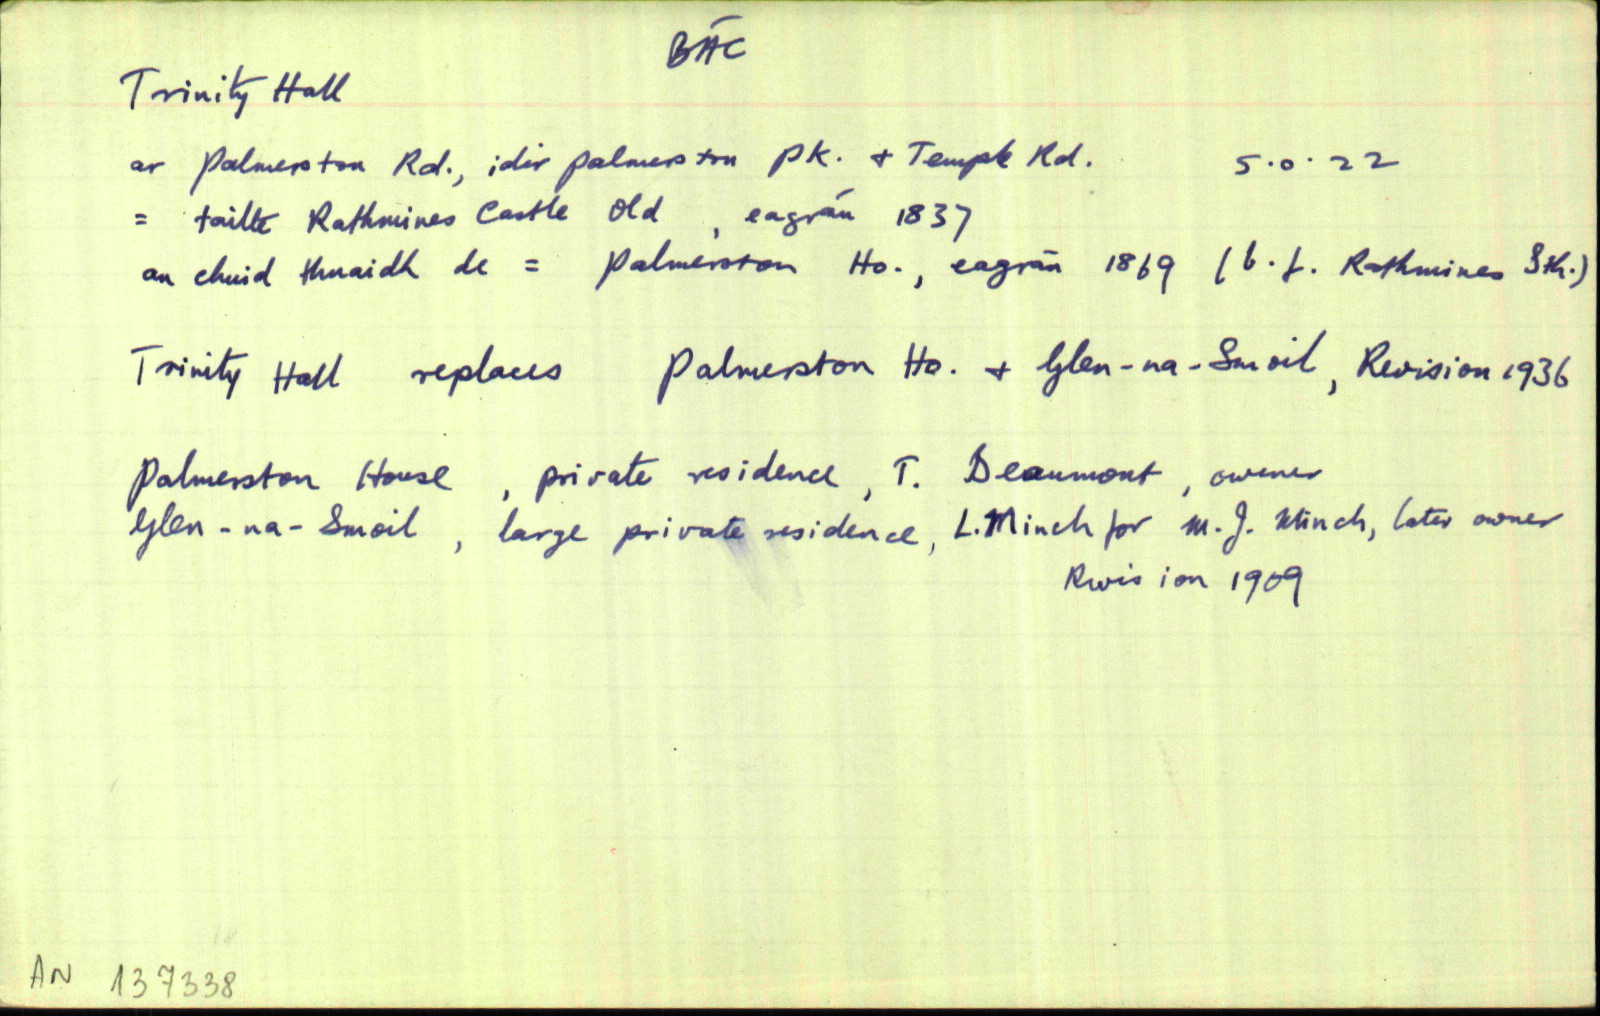 BÁC
Trinity Hall
ar Palmerston Rd., idir Palmerston Pk. + Temple Rd. 5.0.22
= tailte Rathmines Castle Old, eagrán 1837
an chuid thuaidh de = Palmerston Ho., eagrán 1869 (b.f. Rathmines Sth.)
Trinity Hall replaces Palmerston Ho. + Glen-na-Smoil, Revision 1936
Palmerston House, private residence, T. Beaumont, owner
Glen-na-Smoil, large private residence, L. Minch for M. J. Minch, later owner
Revision 1909
AN 137338